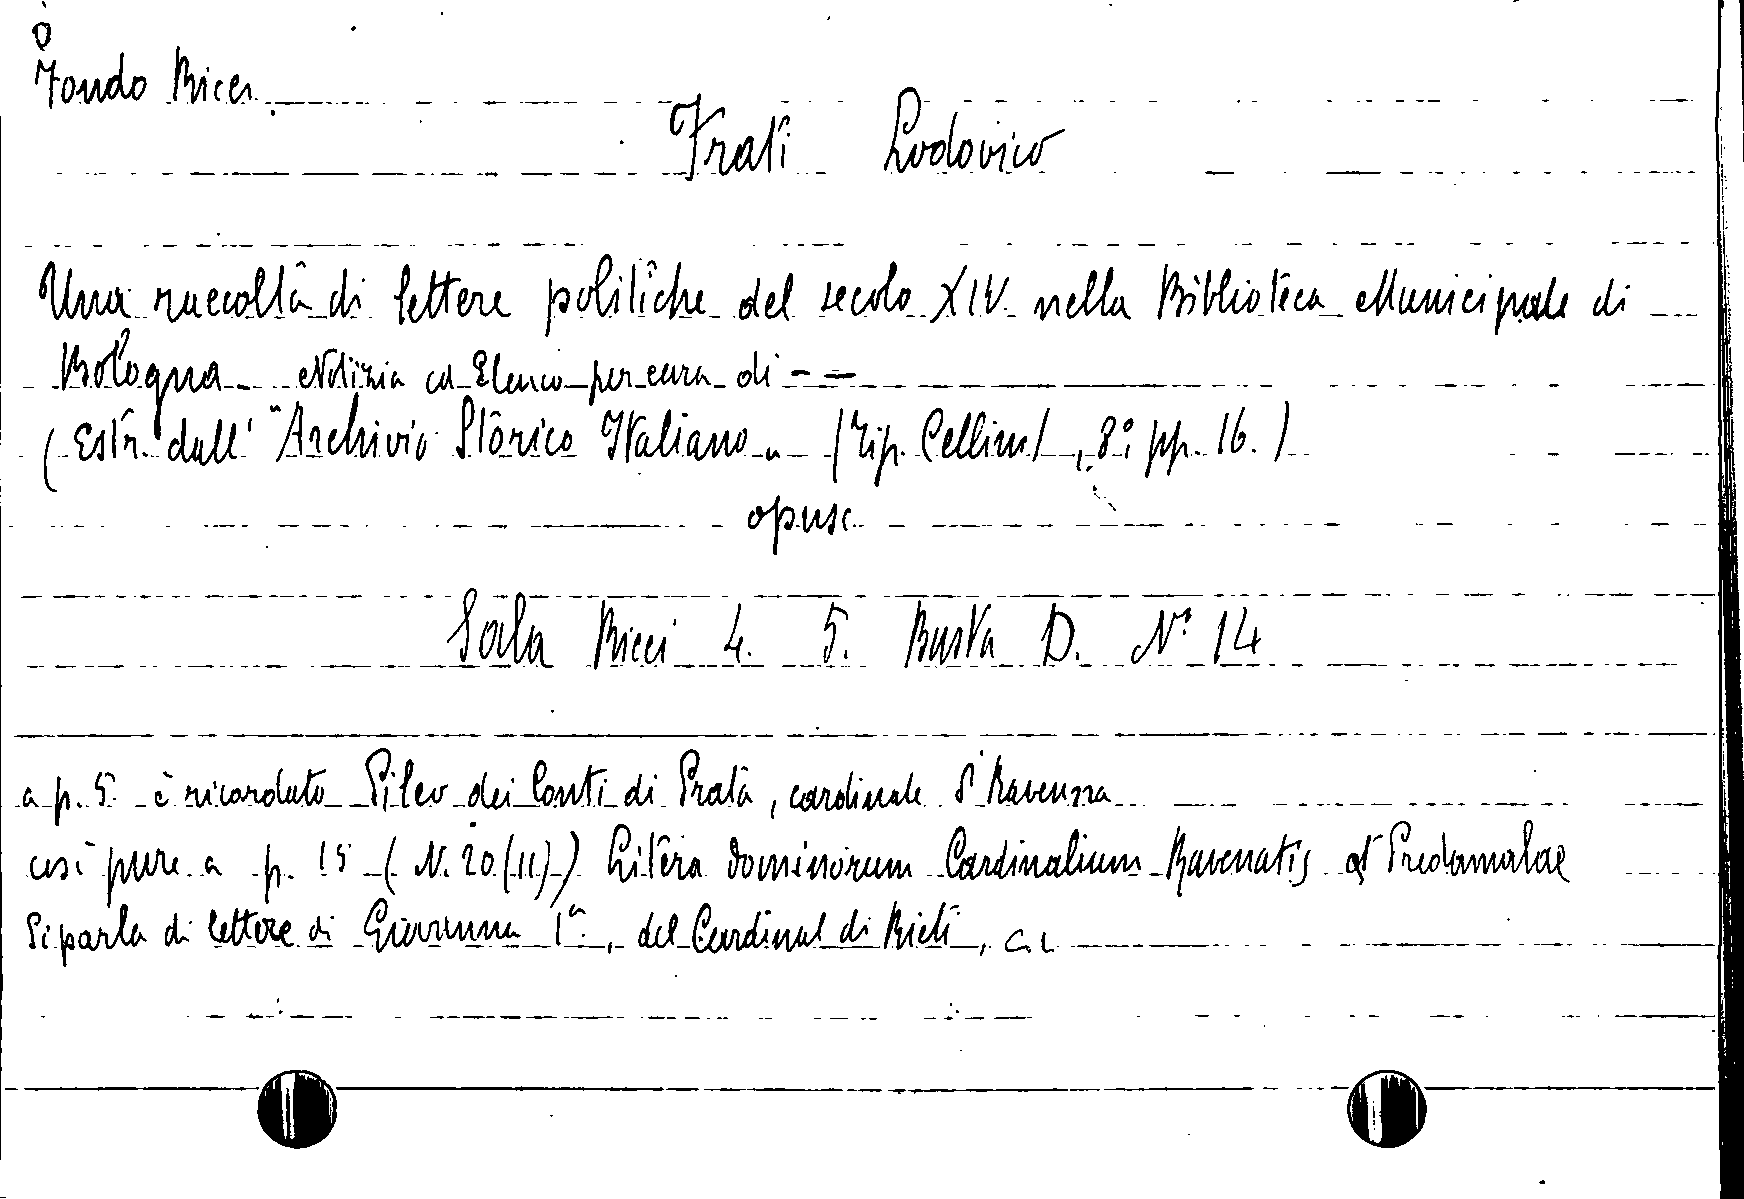 Fondo Ricci
Frati Lodovico
Una raccolta di lettere politiche del secolo XIV nella Biblioteca Municipale di
Bologna Notizia ed Elenco per cura di --
(Estr. dall' "Archivio Storico Italiano" (Tip. Cellini), 8° pp. 16.)
opusc.
Sala Ricci 4. 5. Busta D. N° 14
a p. 5 è ricordato Pileo dei Conti di Prata, cardinale d' Ravenna
così pure a p. 15 (N. 20 (11)) Litera dominorum Cardinalium Ravenatis et
Si parla di lettere di Giovanna 1ª, del Cardinal di Rieti,